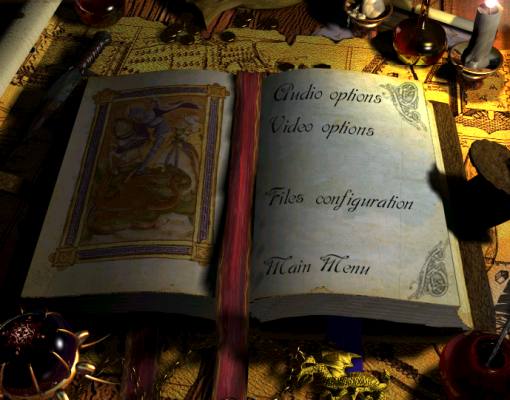 Audio options
Video options
Files configuration
Main Menu